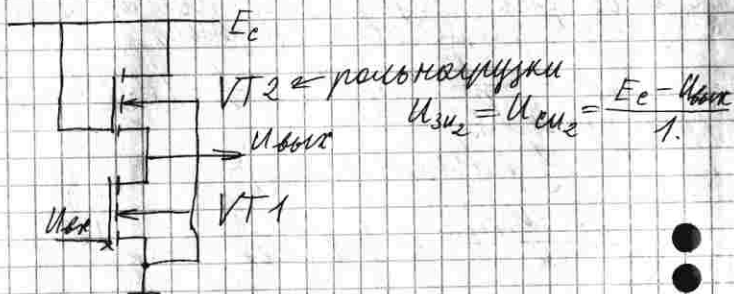 Ec
VT2 ← роль нагрузки
Uзи₂ = Uси₂ = Ec − Uвых / 1.
Uвых
Uвх
VT1